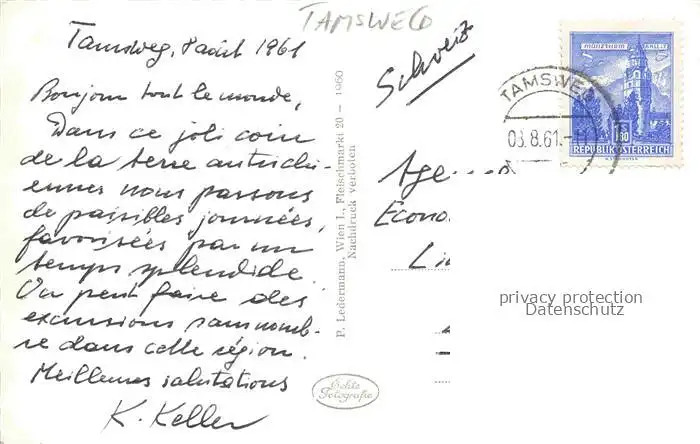 TAMSWEG
Tamsweg, 8 août 1961
Bonjour tout le monde,
Dans ce joli coin
de la terre autrichi-
enne nous passons
de paisibles journées,
favorisées par un
temps splendide.
On peut faire des
excursions sans nomb-
re dans cette région.
Meilleures salutations
K. Keller
P. Ledermann, Wien I., Fleischmarkt 20 – 1960
Nachdruck verboten
Echte
Fotografie
Schweiz
TAMSWEG
08.8.61.-11
MÜNZTURM HALL i/T
1.80
REPUBLIK ÖSTERREICH
Age
Econo
privacy protection
Datenschutz